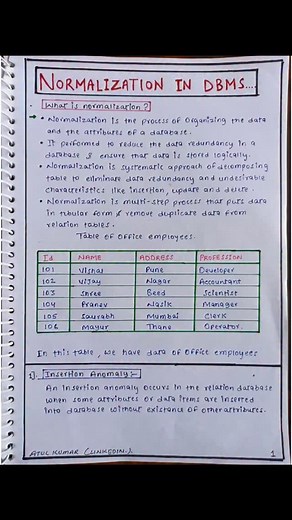 NORMALIZATION IN DBMS....
What is normalization?
• Normalization is the process of Organizing the data
and the attributes of a database.
• It performed to reduce the data redundancy in a
database & ensure that data is stored logically.
• Normalization is systematic approach of decomposing
table to eliminate data redundancy and undesirable
characteristics like insertion, update and delete.
• Normalization is multi-step process that puts data
in tabular form & remove duplicate data from
relation tables.
Table of Office employees.
Id NAME ADDRESS PROFESSION
101 Vishas Pune Developer
102 Vijay Nagar Accountant
103 Shree Beed Scientist
104 Pranav Nasik Manager
105 Saurabh Mumbai Clerk
106 Mayur Thane Operator.
In this table, we have data of Office employees
1) Insertion Anomaly:-
An insertion anomaly occurs in the relation database
when some attributes or data items are inserted
into database without existance of other attributes.
ATUL KUMAR (LINKEDIN.)
1